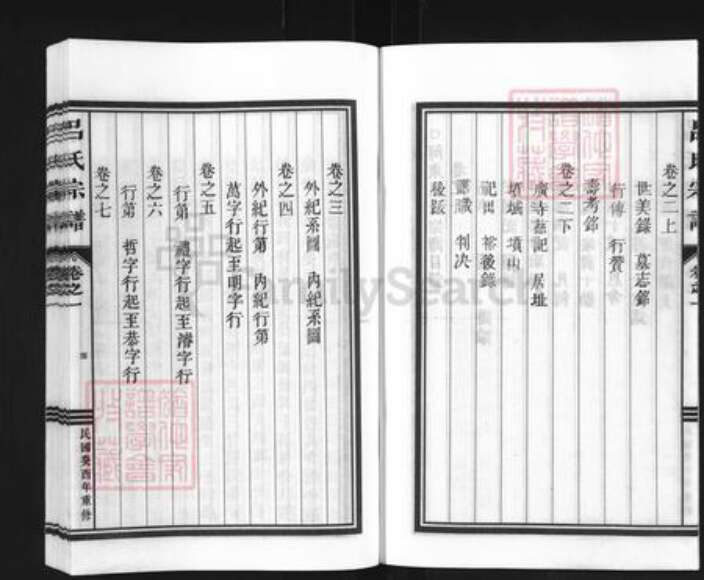 卷之二上
世美錄 墓志銘
行傳 行贊
壽考銘
卷之二下
廣寺菴記 居址
墳域 墳山
祀田 裕後錄
判決
後跋
卷之三
外紀系圖 內紀系圖
卷之四
外紀行第 內紀行第
萬字行起至明字行
卷之五
行第 禮字行起至濬字行
卷之六
行第 哲字行起至恭字行
卷之七
呂氏宗譜 卷之一
民國癸酉年重修
FamilySearch